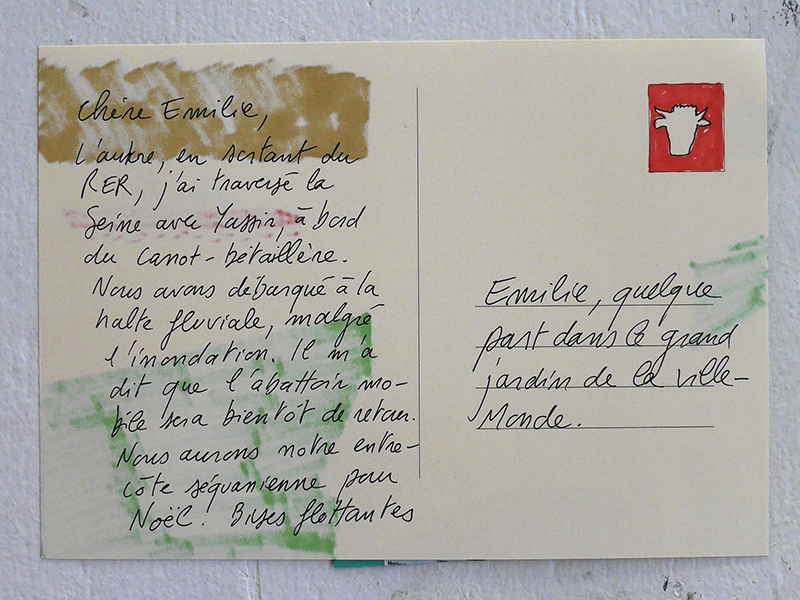 Chère Emilie,
L'autre, en sortant du
RER, j'ai traversé la
Seine avec Yassin, à bord
du Canot-bétaillère.
Nous avons débarqué à la
halte fluviale, malgré
l'inondation. Il m'a
dit que l'abattoir mo-
bile sera bientôt de retour.
Nous aurons notre entre-
côte séquanienne pour
Noël! Bises flottantes
Emilie, quelque
part dans le grand
jardin de la ville-
Monde.